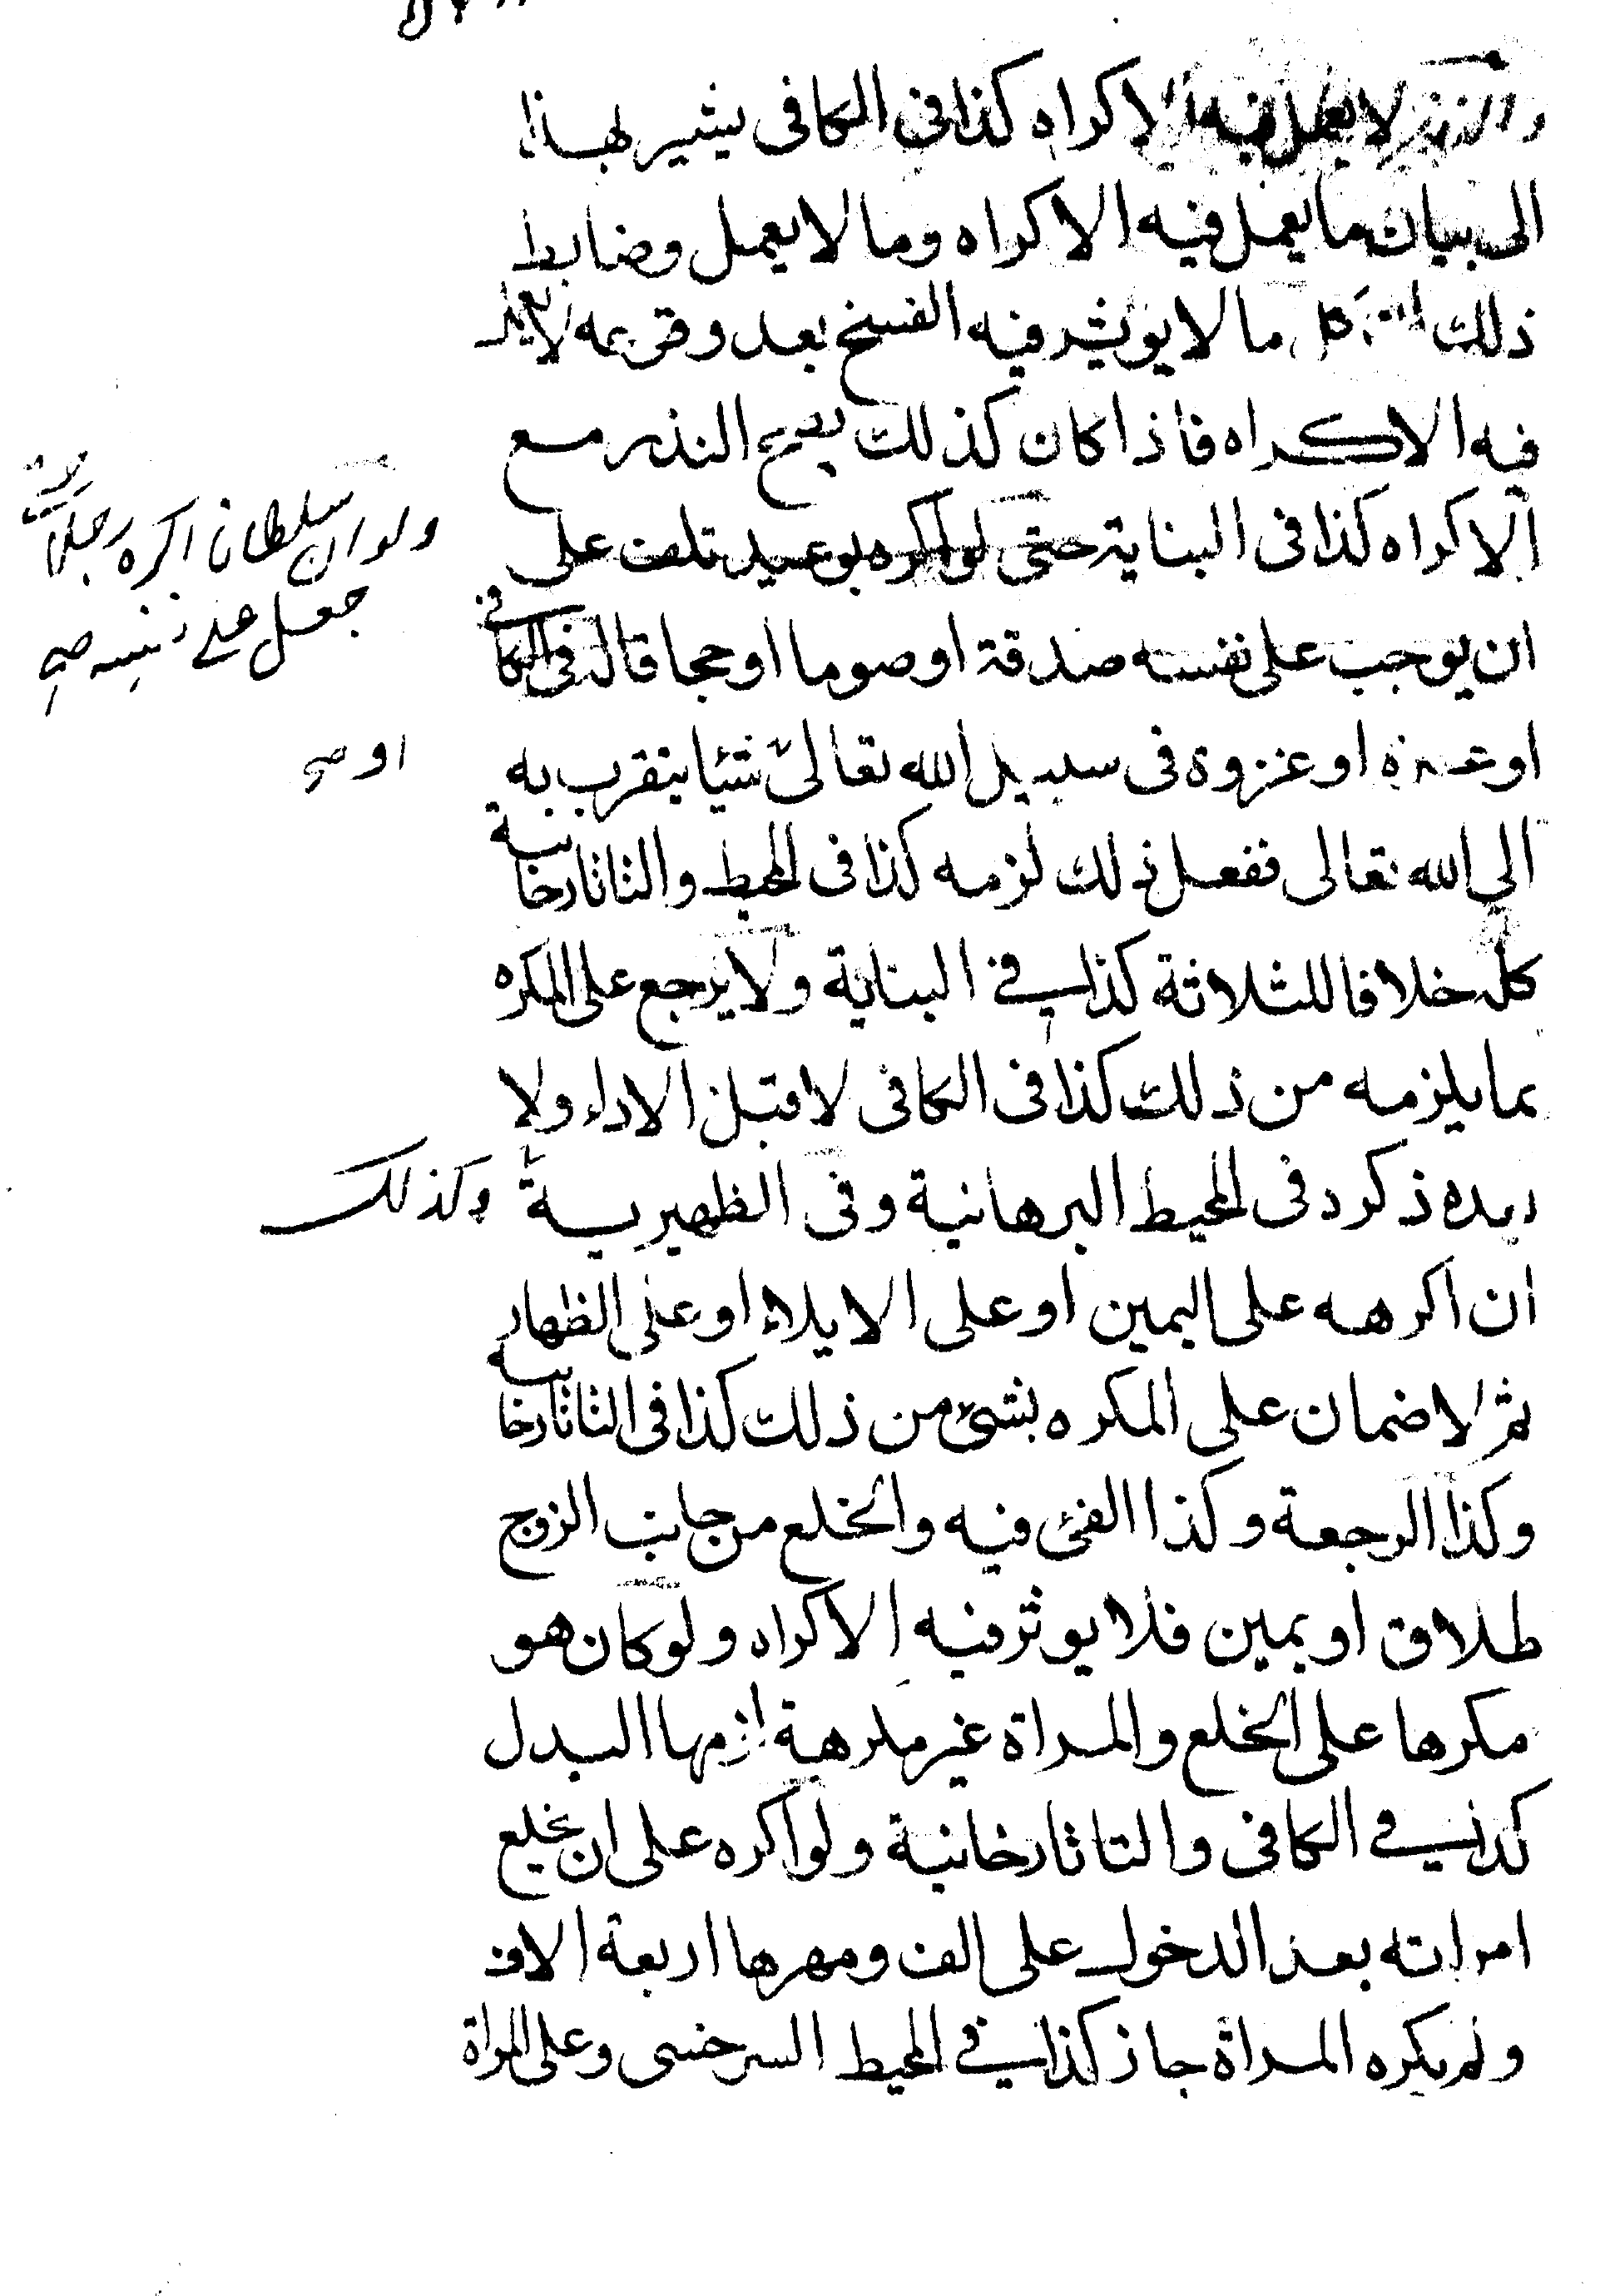 والنذر لا يعمل فيه الاكراه كذا فى الكافى يشير لهذا
الى بيان ما يعمل فيه الاكراه وما لا يعمل وضابط
ذلك ان كل ما لا يوثر فيه الفسخ بعد وقوعه لا يعمل
فيه الاكراه فاذا كان كذلك يصح النذر مع
الاكراه كذا فى البناية حتى لو اكره بوعيد تلف على
ان يوجب على نفسه صدقة او صوما او حجا قاله فى الكافى
او عمرة او غزوة فى سبيل الله تعالى شيئا يتقرب به
الى الله تعالى ففعل ذلك لزمه كذا فى المحيط والتاتارخانية
كله خلافا للثلاثة كذا فى البناية ولا يرجع على المكره
بما يلزمه من ذلك كذا فى الكافى لا قبل الاداء ولا
بعده ذكره فى المحيط البرهانية وفى الظهيرية وكذلك
ان اكرهه على اليمين او على الايلاء او على الظهار
ثم لا ضمان على المكره بشىء من ذلك كذا فى التاتارخانية
وكذا الرجعة وكذا الفئ فيه والخلع من جانب الزوج
طلاق او يمين فلا يوثر فيه الاكراه ولو كان هو
مكرها على الخلع والمراة غير مكرهة لزمها البدل
كذا فى الكافى والتاتارخانية ولو اكره على ان يخلع
امراته بعد الدخول على الف ومهرها اربعة الاف
ولم يكره المراة جاز كذا فى المحيط السرخسى وعلى المراة
ولو ان سلطانا اكره رجلا
جعل على نفسه صح
او صح